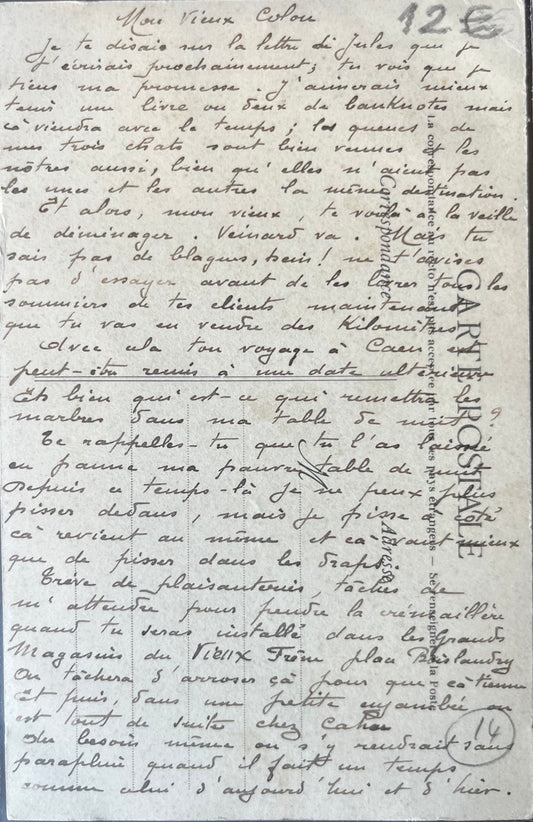 Mon Vieux Colon
12€
Je te disais sur la lettre de Jules que je
t'écrirais prochainement; tu vois que je
tiens ma promesse. J'aimerais mieux
tenir une livre ou deux de banknotes mais
cà viendra avec le temps; les queues de
mes trois chats sont bien venues et les
nôtres aussi, bien qu'elles n'aient pas
les unes et les autres la même destination.
Et alors, mon vieux, te voilà à la veille
de déménager. Veinard va. Mais tu
sais pas de blagues, hein! ne t'avises
pas d'essayer avant de les livrer tous les
sommiers de tes clients maintenant
que tu vas en vendre des Kilomètres
Avec cela ton voyage à Caen est
peut-être remis à une date ultérieure
Eh bien qui est-ce qui remettra les
marbres dans ma table de nuit?
Te rappelles-tu que tu l'as laissée
en panne ma pauvre table de nuit
Depuis ce temps-là je ne peux plus
pisser dedans, mais je pisse à côté
cà revient au même et cà vaut mieux
que de pisser dans les draps.
Trève de plaisanteries, tâches de
m'attendre pour pendre la crémaillère
quand tu seras installé dans les Grands
Magasins du Vieux Frêne place
On tâchera d'arroser çà pour que cà tienne
Et puis, dans une petite enjambée on
est tout de suite chez Cahen
Au besoin même on s'y rendrait sans
parapluie quand il fait un temps
comme celui d'aujourd'hui et d'hier.
14
CARTE POSTALE
La correspondance au recto n'est pas acceptée par tous les pays étrangers — Se renseigner à la Poste
Correspondance
M
Adresse